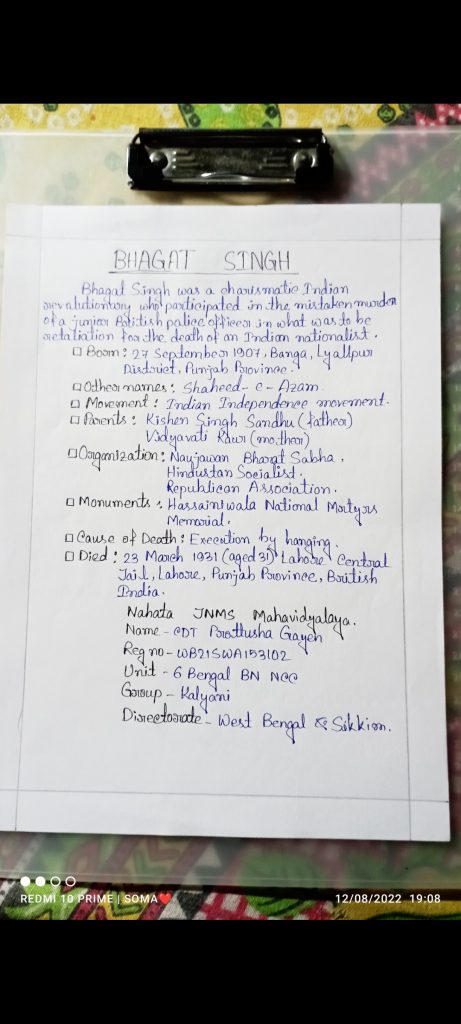 BHAGAT SINGH
Bhagat Singh was a charismatic Indian
revolutionary who participated in the mistaken murder
of a junior British police officer in what was to be
retaliation for the death of an Indian nationalist.
□ Born: 27 September 1907, Banga, Lyallpur
District, Punjab Province.
□ Other names: Shaheed-e-Azam.
□ Movement: Indian Independence movement.
□ Parents: Kishen Singh Sandhu (father)
Vidyavati Kaur (mother)
□ Organization: Naujawan Bharat Sabha.
Hindustan Socialist.
Republican Association.
□ Monuments: Hassainiwala National Martyrs
Memorial.
□ Cause of Death: Execution by hanging.
□ Died: 23 March 1931 (aged 31) Lahore Central
Jail, Lahore, Punjab Province, British
India.
Nahata JNMS Mahavidyalaya.
Name - CDT Prottusha Gayen
Reg no - WB21SWA153102
Unit - 6 Bengal BN NCC
Group - Kalyani
Directorate - West Bengal & Sikkim.
REDMI 10 PRIME | SOMA❤️
12/08/2022 19:08